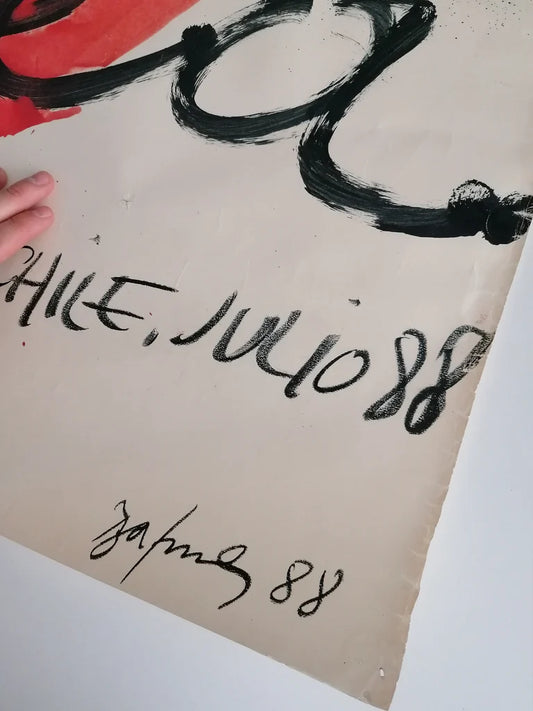 CHILE, JULIO 88
Balmes 88